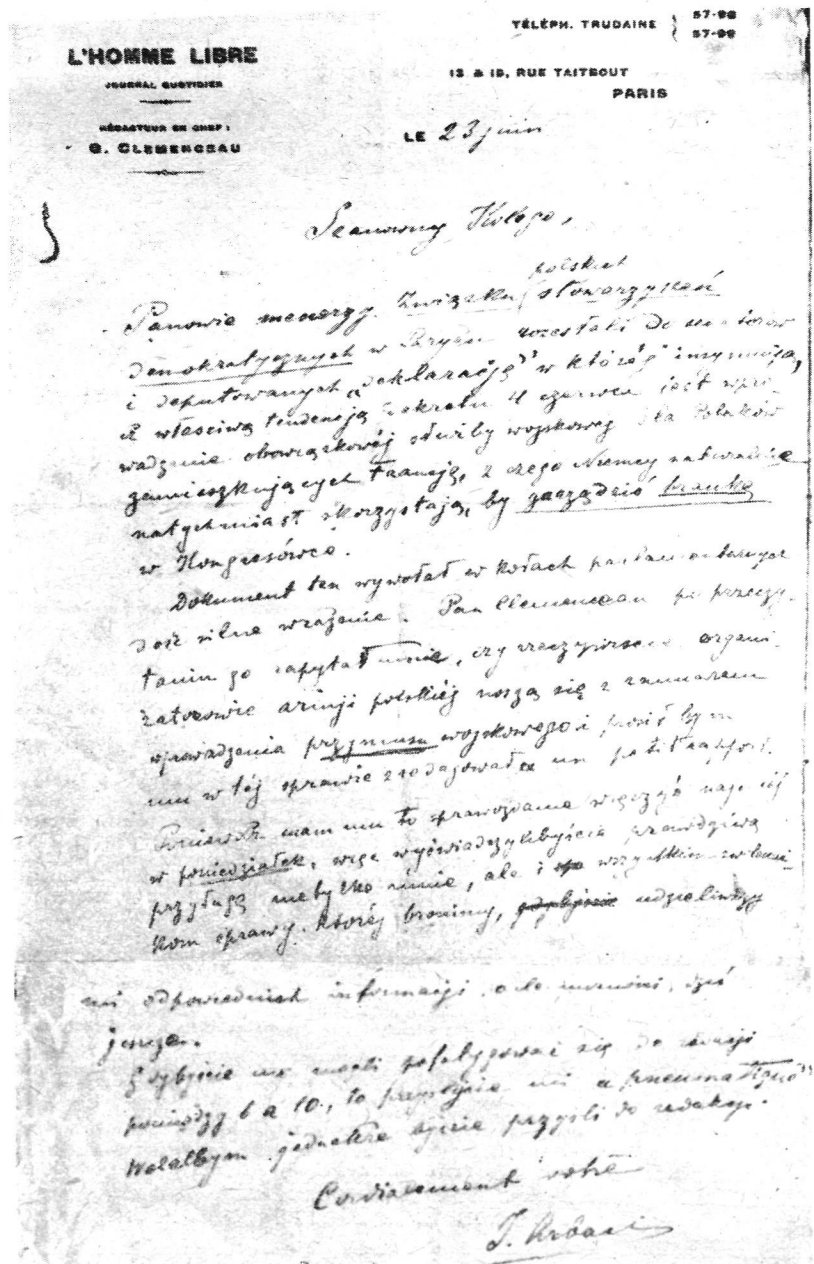 TÉLÉPH. TRUDAINE { 57-98
57-99
L'HOMME LIBRE
JOURNAL QUOTIDIEN
RÉDACTEUR EN CHEF :
G. CLEMENCEAU
13 & 15, RUE TAITBOUT
PARIS
LE 23 juin
Szanowny Kolego,
polskich
Panowie menerzy Związku stowarzyszeń
demokratycznych w Paryżu rozesłali do senatorów
i deputowanych „deklarację" w której insynuują,
iż właściwą tendencją dekretu 4 czerwca jest wpro-
wadzenie obowiązkowej służby wojskowej dla Polaków
zamieszkujących Francję, z czego Niemcy naturalnie
natychmiast skorzystają, by zarządzić brankę
w Kongresówce.
Dokument ten wywołał w kołach parlamentarnych
dość silne wrażenie. Pan Clemenceau po przeczy-
taniu go zapytał mnie, czy rzeczywiście organi-
zatorowie armji polskiej noszą się z zamiarem
wprowadzenia przymusu wojskowego i prosił bym
mu w tej sprawie zredagował un petit rapport.
Ponieważ mam mu to sprawozdanie wręczyć najpóźniej
w poniedziałek, więc wyświadczylibyście prawdziwą
przysługę nietylko mnie, ale i wszystkim zwolenni-
kom sprawy, której bronimy, udzieliwszy
mi odpowiednich informacji o ile możności dziś
jeszcze.
Gdybyście nie mogli pofatygować się do redakcji
pomiędzy 6 a 10, to przyślijcie mi „pneumatique"
Wolałbym jednakże byście przyszli do redakcji.
Cordialement votre